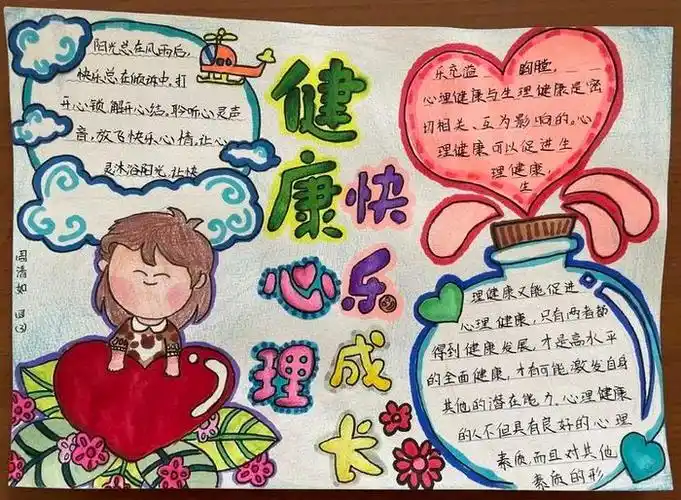 阳光总在风雨后,
快乐总在倾诉中,打
开心锁,解开心结。聆听心灵声
音,放飞快乐心情,让心
灵沐浴阳光,让快
乐充溢 胸膛,
心理健康与生理健康是密
切相关、互为影响的。心
理健康可以促进生
理健康,
生
理健康又能促进
心理健康,只有两者都
得到健康发展,才是高水平
的全面健康,才有可能激发自身
其他的潜在能力。心理健康
的人不但具有良好的心理
素质,而且对其他
素质的形
健康心理
快乐成长
周清如 四(3)